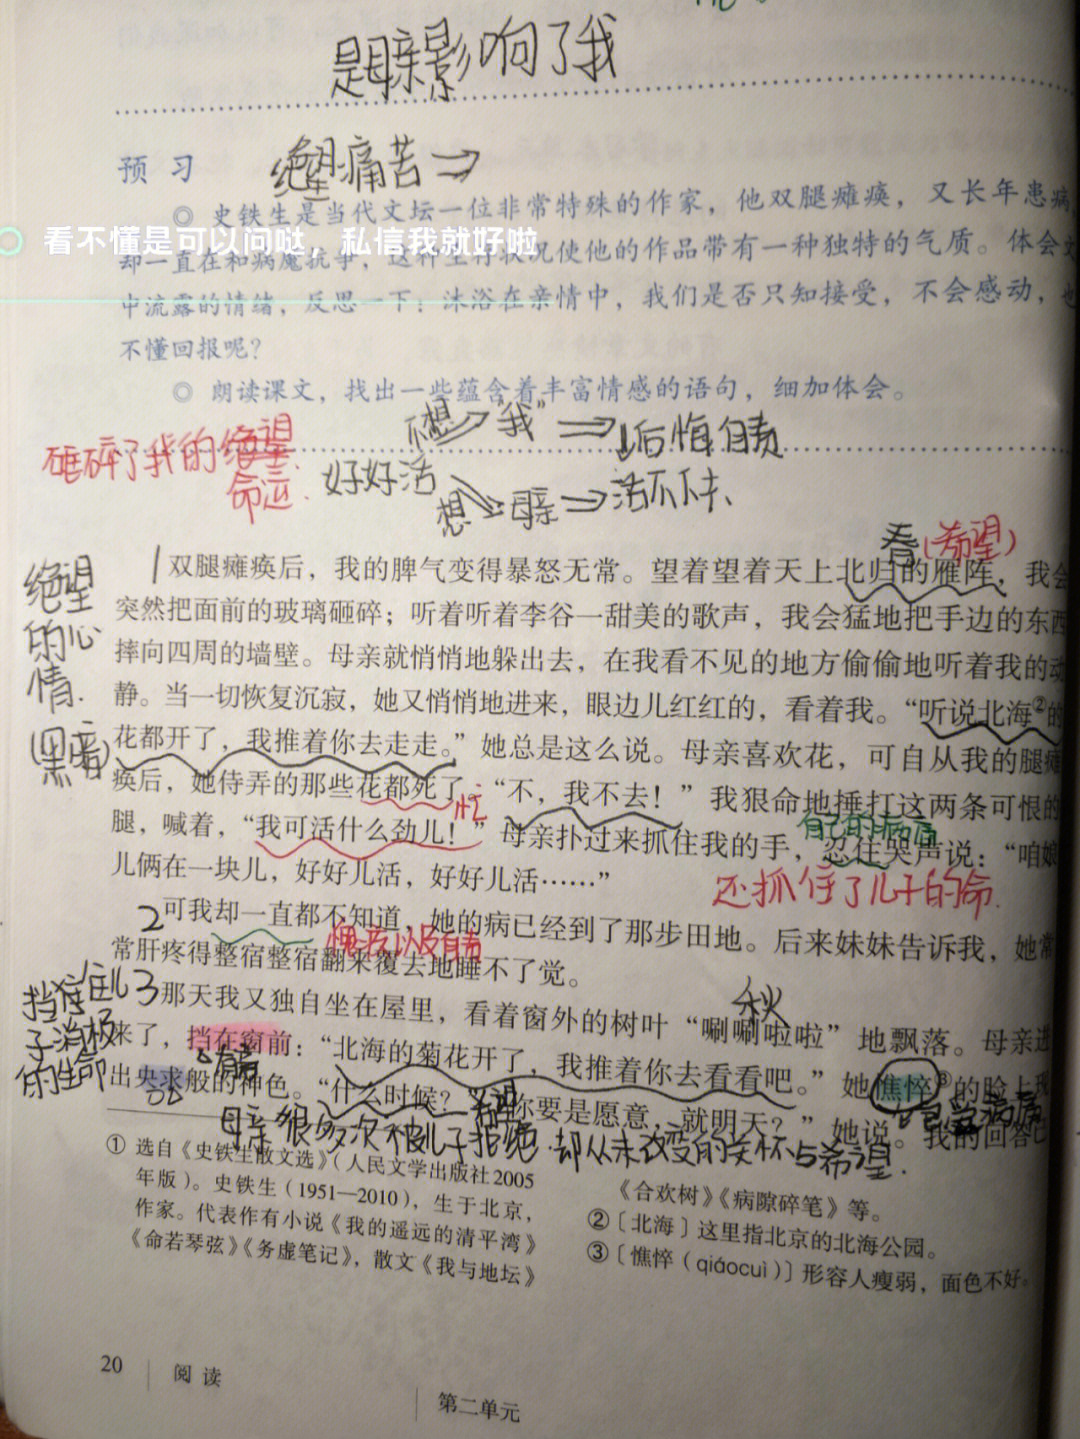 是母亲影响了我
预习
绝望·痛苦⇒
◎ 史铁生是当代文坛一位非常特殊的作家，他双腿瘫痪，又长年患病，
看不懂是可以问哒，私信我就好啦
却一直在和病魔抗争，这种生存状况使他的作品带有一种独特的气质。体会文
中流露的情绪，反思一下：沐浴在亲情中，我们是否只知接受，不会感动，也
不懂回报呢？
◎ 朗读课文，找出一些蕴含着丰富情感的语句，细加体会。
不想 “我” ⇒ 后悔自责
砸碎了我的绝望
命运.
好好活
想 母亲 ⇒ 活不下去、
春(希望)
绝望
的心
情.
(黑暗)
1 双腿瘫痪后，我的脾气变得暴怒无常。望着望着天上北归的雁阵，我会
突然把面前的玻璃砸碎；听着听着李谷一甜美的歌声，我会猛地把手边的东西
摔向四周的墙壁。母亲就悄悄地躲出去，在我看不见的地方偷偷地听着我的动
静。当一切恢复沉寂，她又悄悄地进来，眼边儿红红的，看着我。“听说北海②的
花都开了，我推着你去走走。”她总是这么说。母亲喜欢花，可自从我的腿瘫
痪后，她侍弄的那些花都死了。“不，我不去！”我狠命地捶打这两条可恨的
忙
自己的病痛
腿，喊着，“我可活什么劲儿！”母亲扑过来抓住我的手，忍住哭声说：“咱娘
儿俩在一块儿，好好儿活，好好儿活……”
还抓住了儿子的命.
2 可我却一直都不知道，她的病已经到了那步田地。后来妹妹告诉我，她常
愧疚以及自责
常肝疼得整宿整宿翻来覆去地睡不了觉。
挡住儿
子消极
的生命
秋
3 那天我又独自坐在屋里，看着窗外的树叶“唰唰啦啦”地飘落。母亲进
来了，挡在窗前：“北海的菊花开了，我推着你去看看吧。”她憔悴③的脸上现
出央求般的神色。“什么时候？”“你要是愿意，就明天？”她说。我的回答已
母亲很多次被儿子拒绝.却从未改变的关怀与希望.
① 选自《史铁生散文选》（人民文学出版社2005
年版）。史铁生（1951—2010），生于北京，
作家。代表作有小说《我的遥远的清平湾》
《命若琴弦》《务虚笔记》，散文《我与地坛》
《合欢树》《病隙碎笔》等。
②〔北海〕这里指北京的北海公园。
③〔憔悴（qiáocuì）〕形容人瘦弱，面色不好。
20
阅读
第二单元